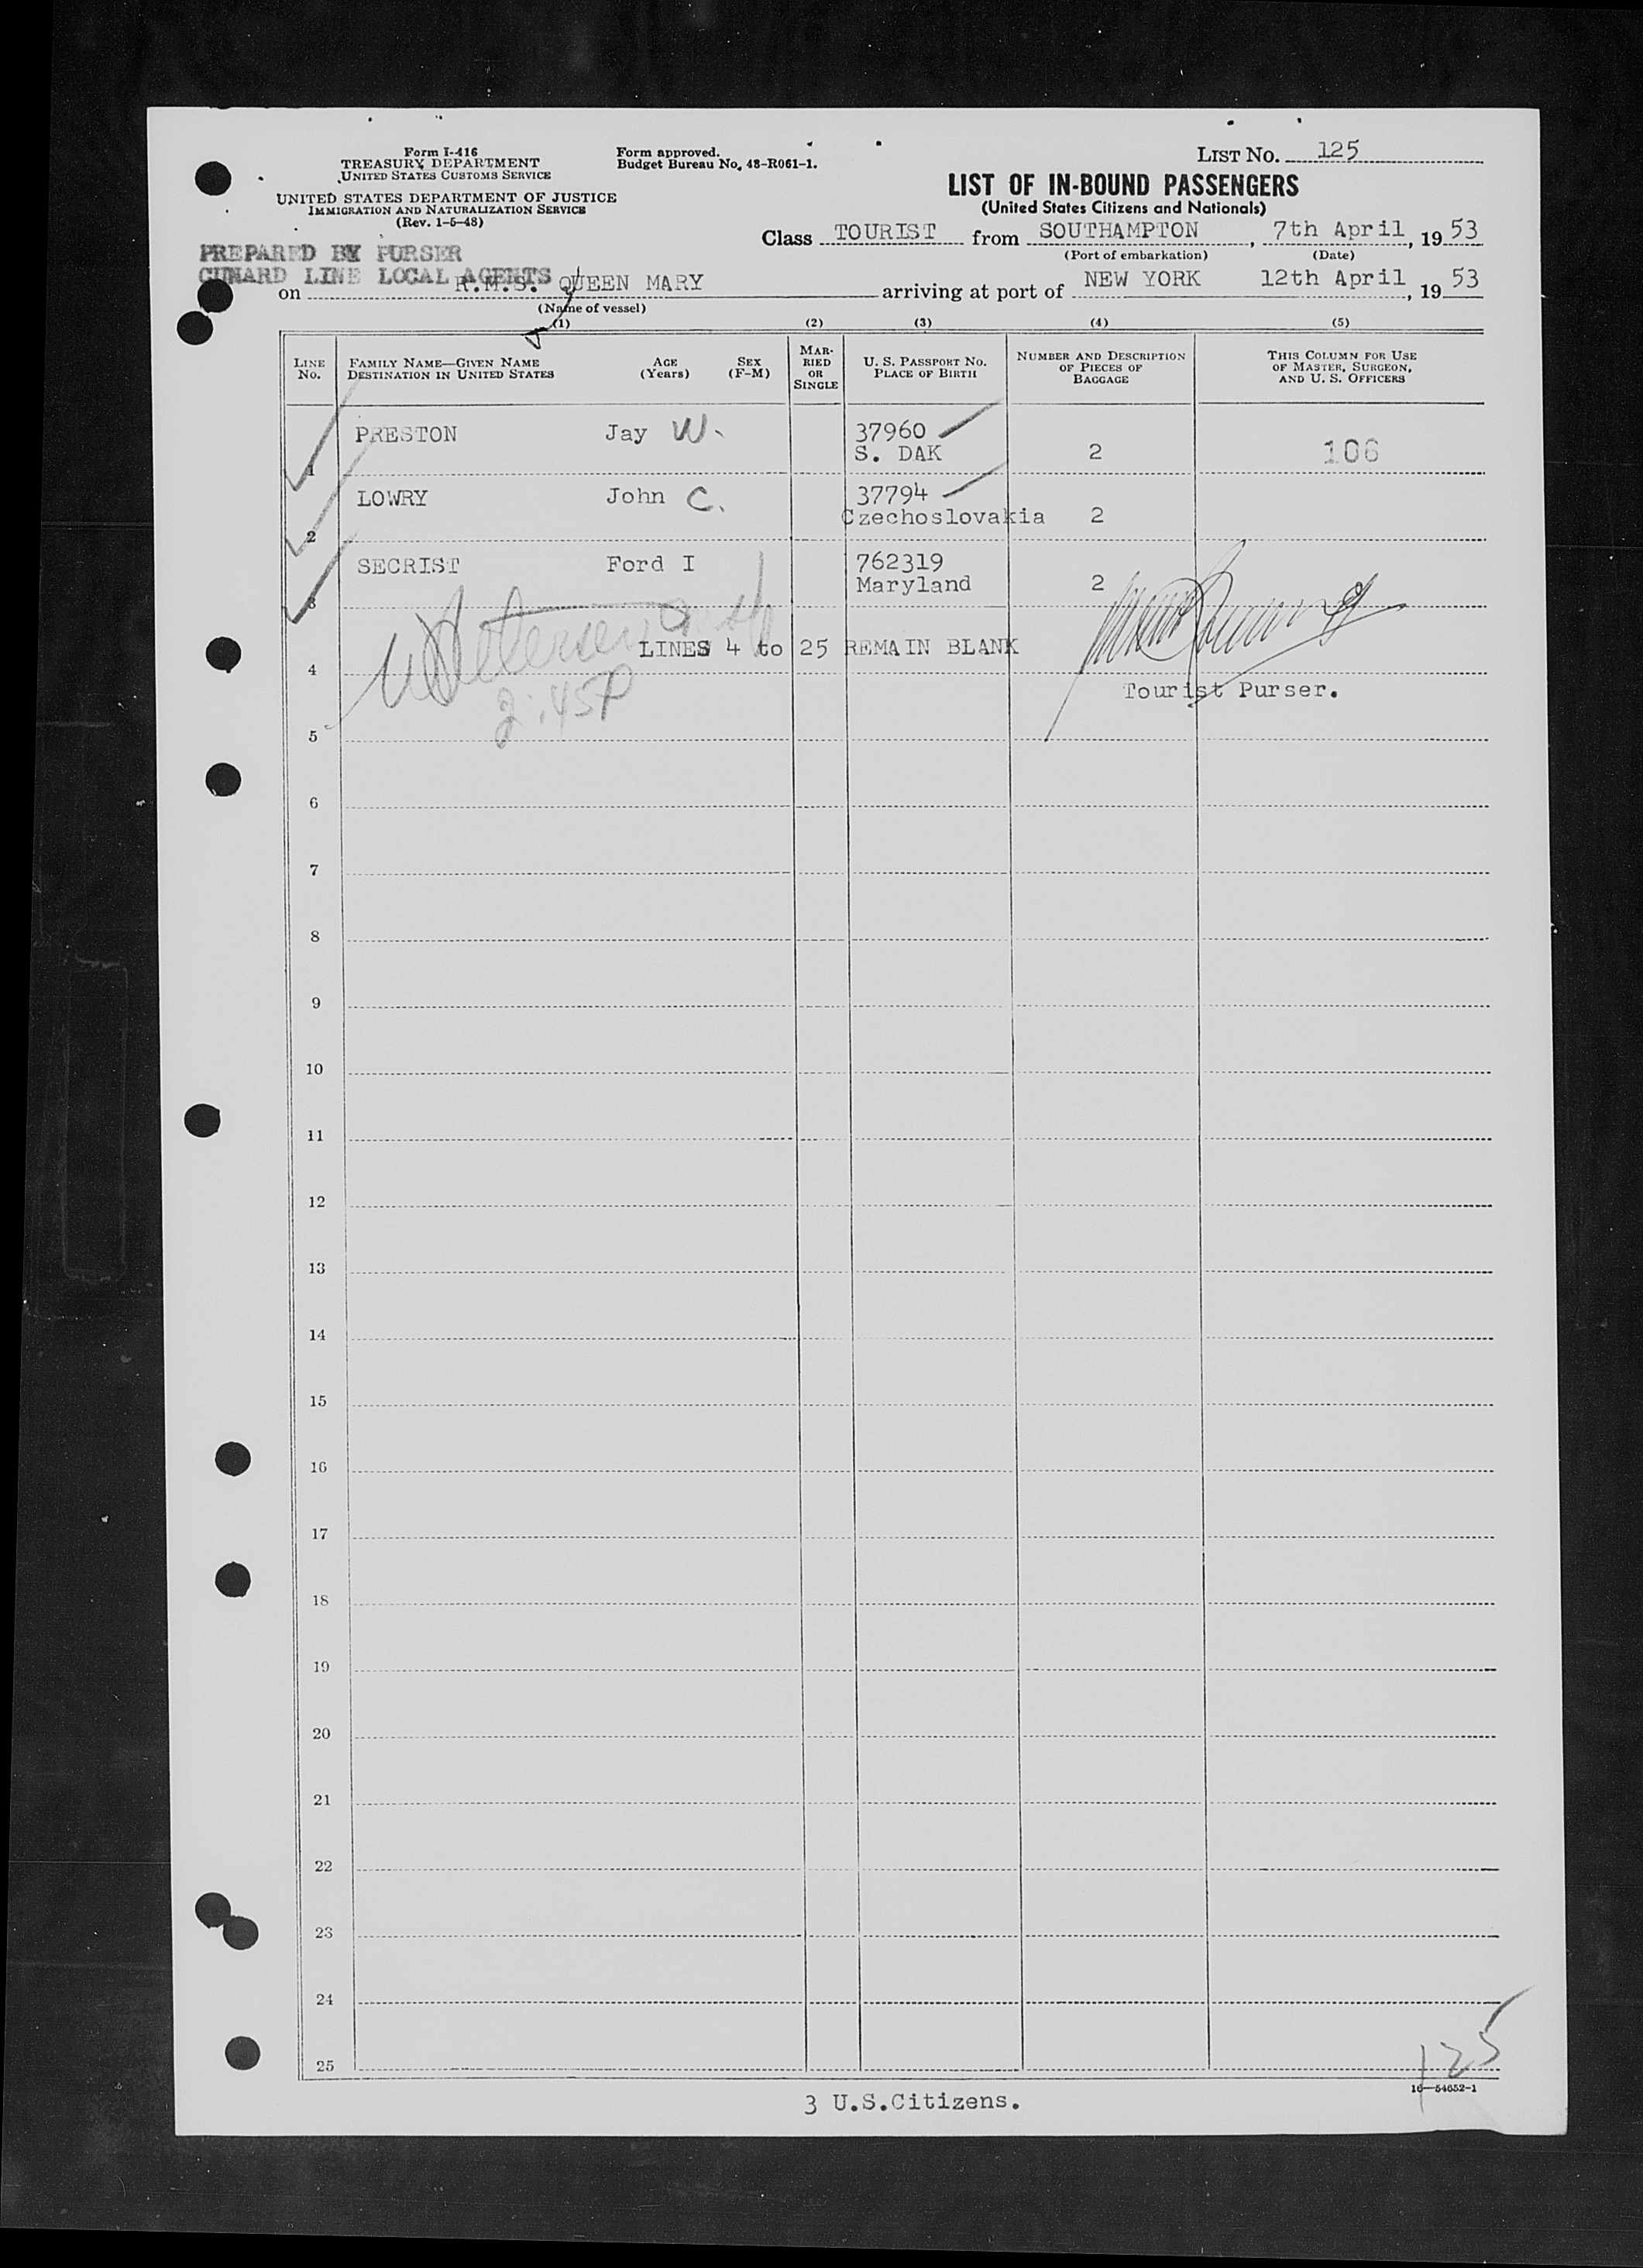 Form I-416
TREASURY DEPARTMENT
UNITED STATES CUSTOMS SERVICE
UNITED STATES DEPARTMENT OF JUSTICE
IMMIGRATION AND NATURALIZATION SERVICE
(Rev. 1-5-48)
Form approved.
Budget Bureau No. 48-R061-1.
LIST No. 125
LIST OF IN-BOUND PASSENGERS
(United States Citizens and Nationals)
Class TOURIST from SOUTHAMPTON, 7th April, 1953
(Port of embarkation) (Date)
PREPARED BY PURSER
CUNARD LINE LOCAL AGENTS
on R.M.S. QUEEN MARY arriving at port of NEW YORK 12th April, 1953
(Name of vessel)
(1) (2) (3) (4) (5)
LINE No.
FAMILY NAME—GIVEN NAME
DESTINATION IN UNITED STATES
AGE (Years)
SEX (F-M)
MARRIED OR SINGLE
U. S. PASSPORT No.
PLACE OF BIRTH
NUMBER AND DESCRIPTION OF PIECES OF BAGGAGE
THIS COLUMN FOR USE OF MASTER, SURGEON, AND U. S. OFFICERS
PRESTON Jay W. 37960
1 S. DAK 2 106
LOWRY John C. 37794
2 Czechoslovakia 2
SECRIST Ford I 762319
3 Maryland 2
LINES 4 to 25 REMAIN BLANK
4
Tourist Purser.
2:45P
5
6
7
8
9
10
11
12
13
14
15
16
17
18
19
20
21
22
23
24
25
125
16—54652-1
3 U.S.Citizens.